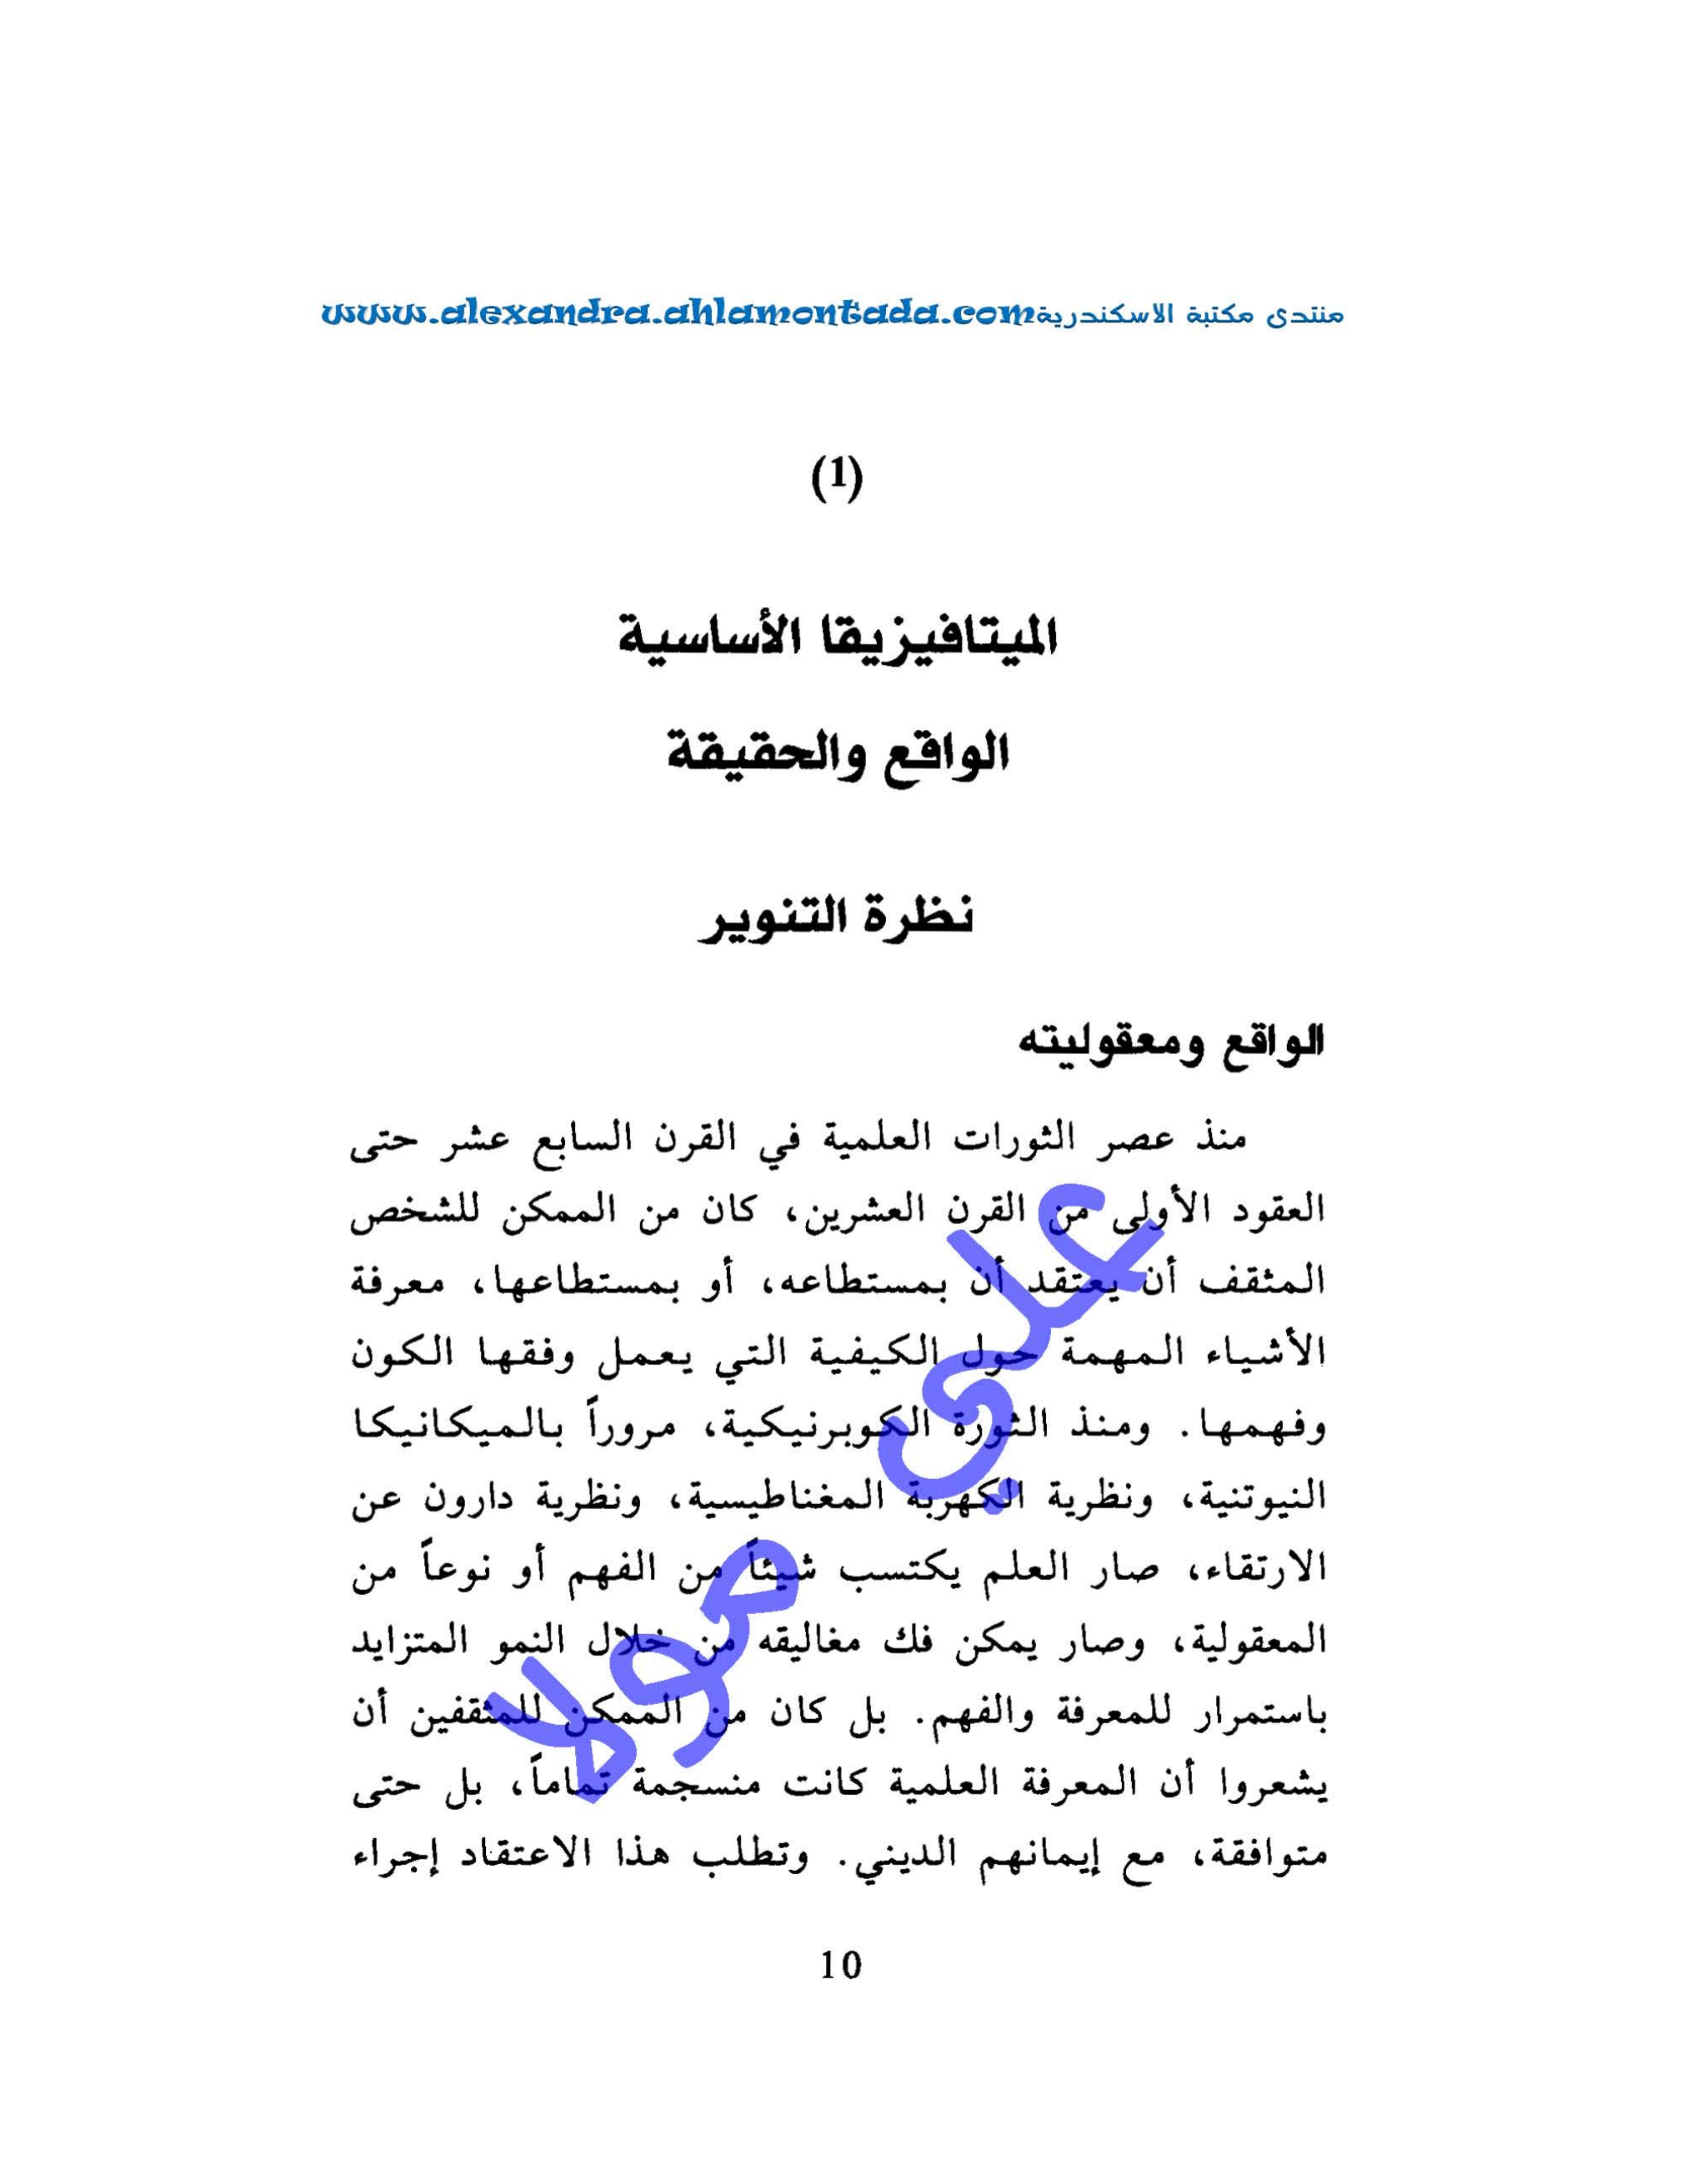 منتدى مكتبة الاسكندرية www.alexandra.ahlamontada.com
(1)
الميتافيزيقا الأساسية
الواقع والحقيقة
نظرة التنوير
الواقع ومعقوليته
منذ عصر الثورات العلمية في القرن السابع عشر حتى
العقود الأولى من القرن العشرين، كان من الممكن للشخص
المثقف أن يعتقد أن بمستطاعه، أو بمستطاعها، معرفة
الأشياء المهمة حول الكيفية التي يعمل وفقها الكون
وفهمها. ومنذ الثورة الكوبرنيكية، مروراً بالميكانيكا
النيوتنية، ونظرية الكهربة المغناطيسية، ونظرية دارون عن
الارتقاء، صار العلم يكتسب شيئاً من الفهم أو نوعاً من
المعقولية، وصار يمكن فك مغاليقه من خلال النمو المتزايد
باستمرار للمعرفة والفهم. بل كان من الممكن للمثقفين أن
يشعروا أن المعرفة العلمية كانت منسجمة تماماً، بل حتى
متوافقة، مع إيمانهم الديني. وتطلب هذا الاعتقاد إجراء
علي مولا
10